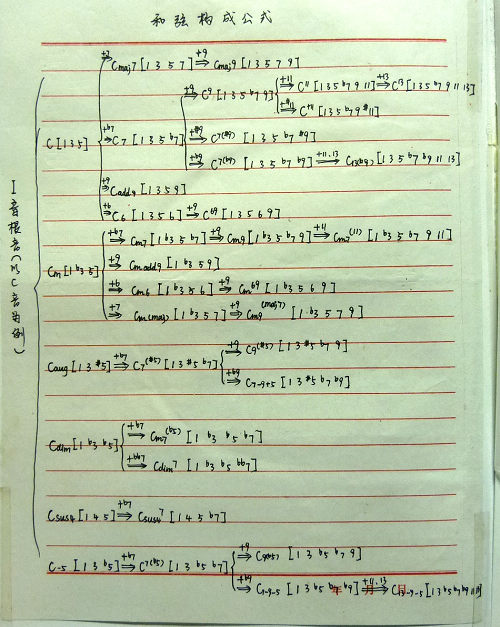 和弦构成公式
+7⇒ Cmaj7 [1 3 5 7] +9⇒ Cmaj9 [1 3 5 7 9]
+9⇒ C9 [1 3 5 b7 9] +11⇒ C11 [1 3 5 b7 9 11] +13⇒ C13 [1 3 5 b7 9 11 13]
+#11⇒ C+11 [1 3 5 b7 9 #11]
C [1 3 5] +b7⇒ C7 [1 3 5 b7] +#9⇒ C7(#9) [1 3 5 b7 #9]
+b9⇒ C7(b9) [1 3 5 b7 b9] +11.13⇒ C13(b9) [1 3 5 b7 b9 11 13]
+9⇒ Cadd9 [1 3 5 9]
+6⇒ C6 [1 3 5 6] +9⇒ C69 [1 3 5 6 9]
I音根音(以C音为例)
+b7⇒ Cm7 [1 b3 5 b7] +9⇒ Cm9 [1 b3 5 b7 9] +11⇒ Cm7(11) [1 b3 5 b7 9 11]
Cm [1 b3 5] +9⇒ Cmadd9 [1 b3 5 9]
+6⇒ Cm6 [1 b3 5 6] +9⇒ Cm69 [1 b3 5 6 9]
+7⇒ Cm(maj7) [1 b3 5 7] +9⇒ Cm9(maj7) [1 b3 5 7 9]
+9⇒ C9(#5) [1 3 #5 b7 9]
Caug [1 3 #5] +b7⇒ C7(#5) [1 3 #5 b7]
+b9⇒ C7-9+5 [1 3 #5 b7 b9]
+b7⇒ Cm7(b5) [1 b3 b5 b7]
Cdim [1 b3 b5]
+bb7⇒ Cdim7 [1 b3 b5 bb7]
Csus4 [1 4 5] +b7⇒ Csus47 [1 4 5 b7]
+9⇒ C9(b5) [1 3 b5 b7 9]
C-5 [1 3 b5] +b7⇒ C7(b5) [1 3 b5 b7]
+b9⇒ C7-9-5 [1 3 b5 b7 b9] +11.13⇒ C13-9-5 [1 3 b5 b7 b9 11 13]
年 月 日